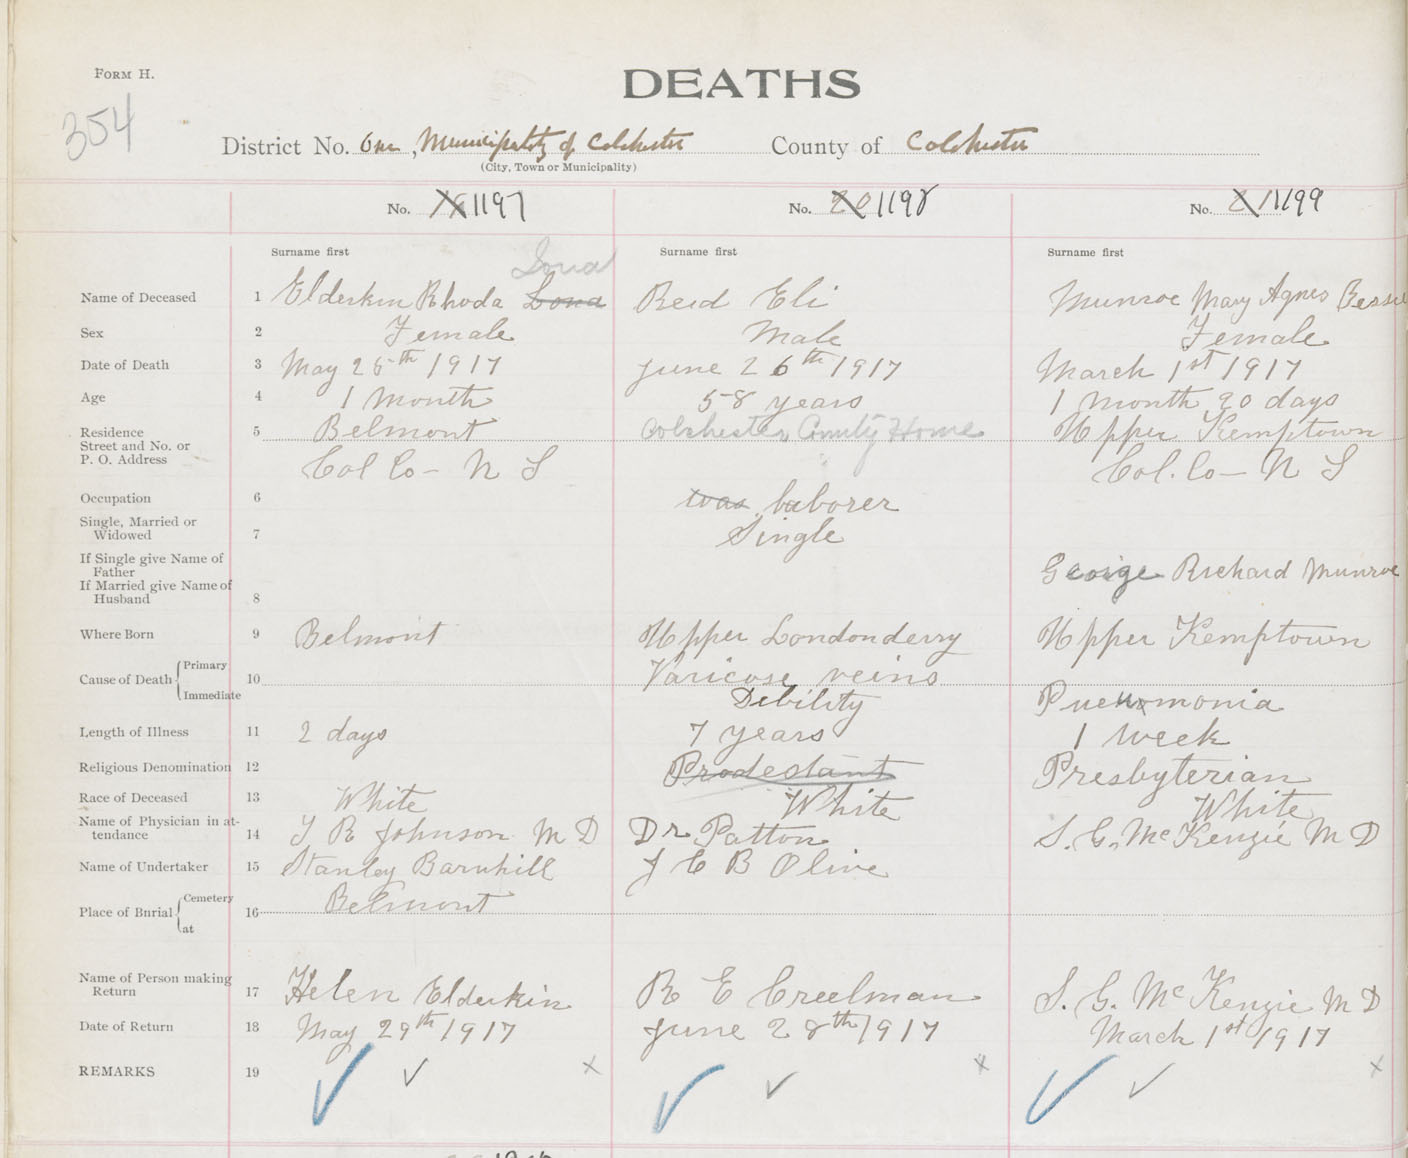 FORM H.
DEATHS
354
District No. One, Municipality of Colchester County of Colchester
(City, Town or Municipality)
No. 1197 No. 20 1198 No. 21 1199
Surname first Surname first Surname first
Iona
Name of Deceased 1 Elderkin Rhoda Lona Reid Eli Munroe Mary Agnes Bessie
Sex 2 Female Male Female
Date of Death 3 May 25th 1917 June 26th 1917 March 1st 1917
Age 4 1 month 58 years 1 month 20 days
Residence 5 Belmont Colchester County Home Upper Kemptown
Street and No. or
P. O. Address Col Co - N S Col. Co - N S
Occupation 6 was laborer
Single, Married or
Widowed 7 Single
If Single give Name of
Father George Richard Munroe
If Married give Name of
Husband 8
Where Born 9 Belmont Upper Londonderry Upper Kemptown
Cause of Death Primary 10 Varicose veins
Immediate Debility Pneumonia
Length of Illness 11 2 days 7 years 1 week
Religious Denomination 12 Prodestant Presbyterian
Race of Deceased 13 White White White
Name of Physician in at-
tendance 14 T R Johnson M D Dr Patton S. G. McKenzie M D
Name of Undertaker 15 Stanley Barnhill J C B Olive
Place of Burial Cemetery 16 Belmont
at
Name of Person making
Return 17 Helen Elderkin R E Creelman S. G. McKenzie M D
Date of Return 18 May 29th 1917 June 28th 1917 March 1st 1917
REMARKS 19